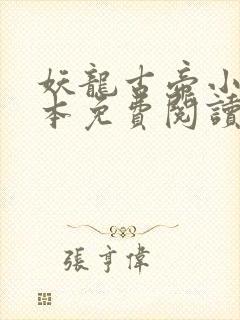 妖龍古帝小
本免費閱讀
張亨偉